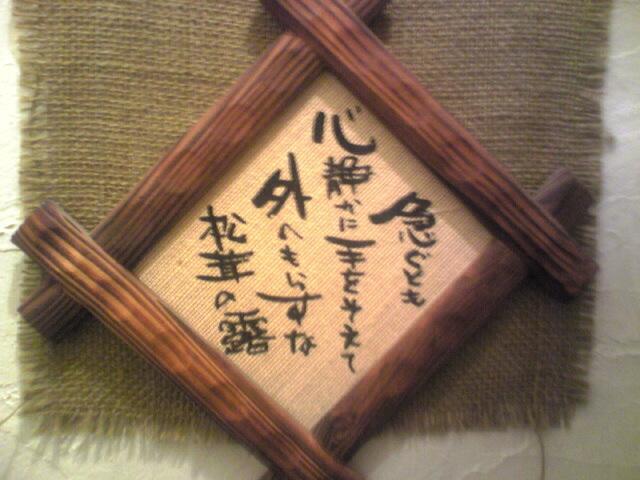 急ぐとも
心静かに手をそえて
外へもらすな
松茸の露